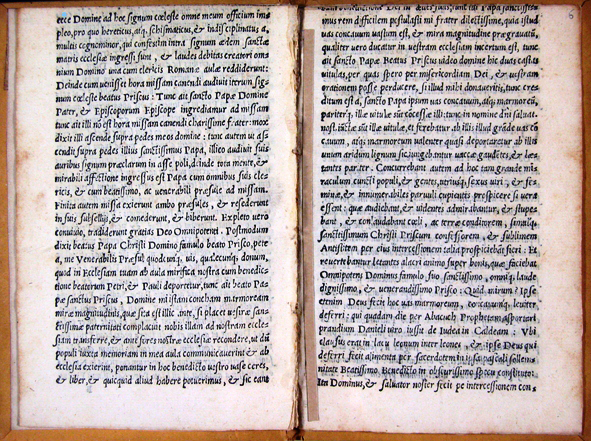 ecce Domine ad hoc signum cœleste omne meum officium im=
pleo, pro quo hereticus, atq; schismaticus, & indisciplinatus a,
multis cognominer, qui confestim intra signum ædem sanctæ
matris ecclesiæ ingressi sunt, & laudes debitas creatori om=
nium Domino una cum clericis Romanæ aulæ reddiderunt:
Deinde cum uenisset hora missam canendi audiuit iterum sig=
num cœleste beatus Priscus: Tunc ait sancto Papæ Domine
Pater, & Episcoporum Episcope ingrediamur ad missam
tunc ait illi nõ est hora missam canendi charissime frater: mox
dixit illi ascende supra pedes meos domine: tunc autem ut as=
cendit supra pedes illius sanctissimus Papa, illico audiuit suis
auribus signum præclarum in asse poli, deinde tota mente, &
mirabili affectione ingressus est Papa cum omnibus suis cle=
ricis, & cum beatissimo, ac uenerabili præsule ad missam.
Finita autem missa exierunt ambo præsules, & resederunt
in suis subsellijs, & comederunt, & biberunt. Expleto uero
conuiuio, tradiderunt gratias Deo Omnipotenti. Postmodum
dixit beatus Papa Christi Domini famulo beato Prisco, pete
a, me Venerabilis Præsul quodcunq; uis, qualecunq; donum,
quid in Ecclesiam tuam ab aula mirifica nostra cum benedic=
tione beatorum Petri, & Pauli deportetur, tunc ait beato Pa=
pæ sanctus Priscus, Domine mi istam concham marmoream
miræ magnitudinis, quæ sita est illic ante, si placet uestræ sanc=
tissimæ paternitati complaciat nobis illam ad nostram eccle=
siam transferre, & ante fores nostræ ecclesiæ recondere, ut dũ
populi iuxta memoriam in mea aula communicauerint & ab
ecclesia exierint, ponantur in hoc benedicto uestro uase ceres,
& liber, & quicquid aliud habere potuerimus, & sic eant
mus rem difficilem postulasti mi frater dilectissime, quia istud
uas concauum uastum est, & mira magnitudine prægrauatũ,
qualiter uero ducatur in uestram ecclesiam incertum est, tunc
ait sancto Papæ Beatus Priscus uideo domine hic duas castas
uitulas, per quas spero per misericordiam Dei, & uestram
orationem posse perducere, si illud mihi donaueritis, tunc cre=
ditum est a, sancto Papa ipsum uas concauum, atq; marmoreũ,
orationem
cauum, atq; marmoreum ualenter quasi deportaretur ab illis
untium aridum lignum sic iungebantur uaccæ gaudentes, & læ=
tantes pariter. Concurrebant autem ad hoc tam grande mi=
raculum cuncti populi, & gentes, utriusq; sexus uiri, & fœ=
minæ, & innumerabiles paruuli cupientes prospicere si uera
essent: quæ audiebant, & uidentes admirabantur, & stupe=
bant, & conlaudabant cœli, ac terræ conditorem, simulq;
sanctissimum Christi Priscum confessorem, & sublimem
Antistitem per cuius intercessionem talia prospiciebant fieri: Et
reuertebantur letantes alacri animo super bonis, quæ faciebat
Omnipotens Dominus famulo suo sanctissimo, omniq; laude
dignissimo, & uenerandissimo Prisco: Quid mirum? Ipse
etenim Deus fecit hoc uas marmoreum, concauumq; leuiter
deferri: qui quadam die per Abacuch Prophetam asportari
prandium Danieli uiro iussit de Iudæa in Caldeam: Vbi
clausus erat in lacu leonum inter leones, & ipse Deus qui
deferri fecit alimenta per sacerdotem in ipsa paschali sollem=
nitate Beatissimo Benedicto in obscurissimo specu constituto:
Ita Dominus, & saluator noster fecit pe intercessionem con=